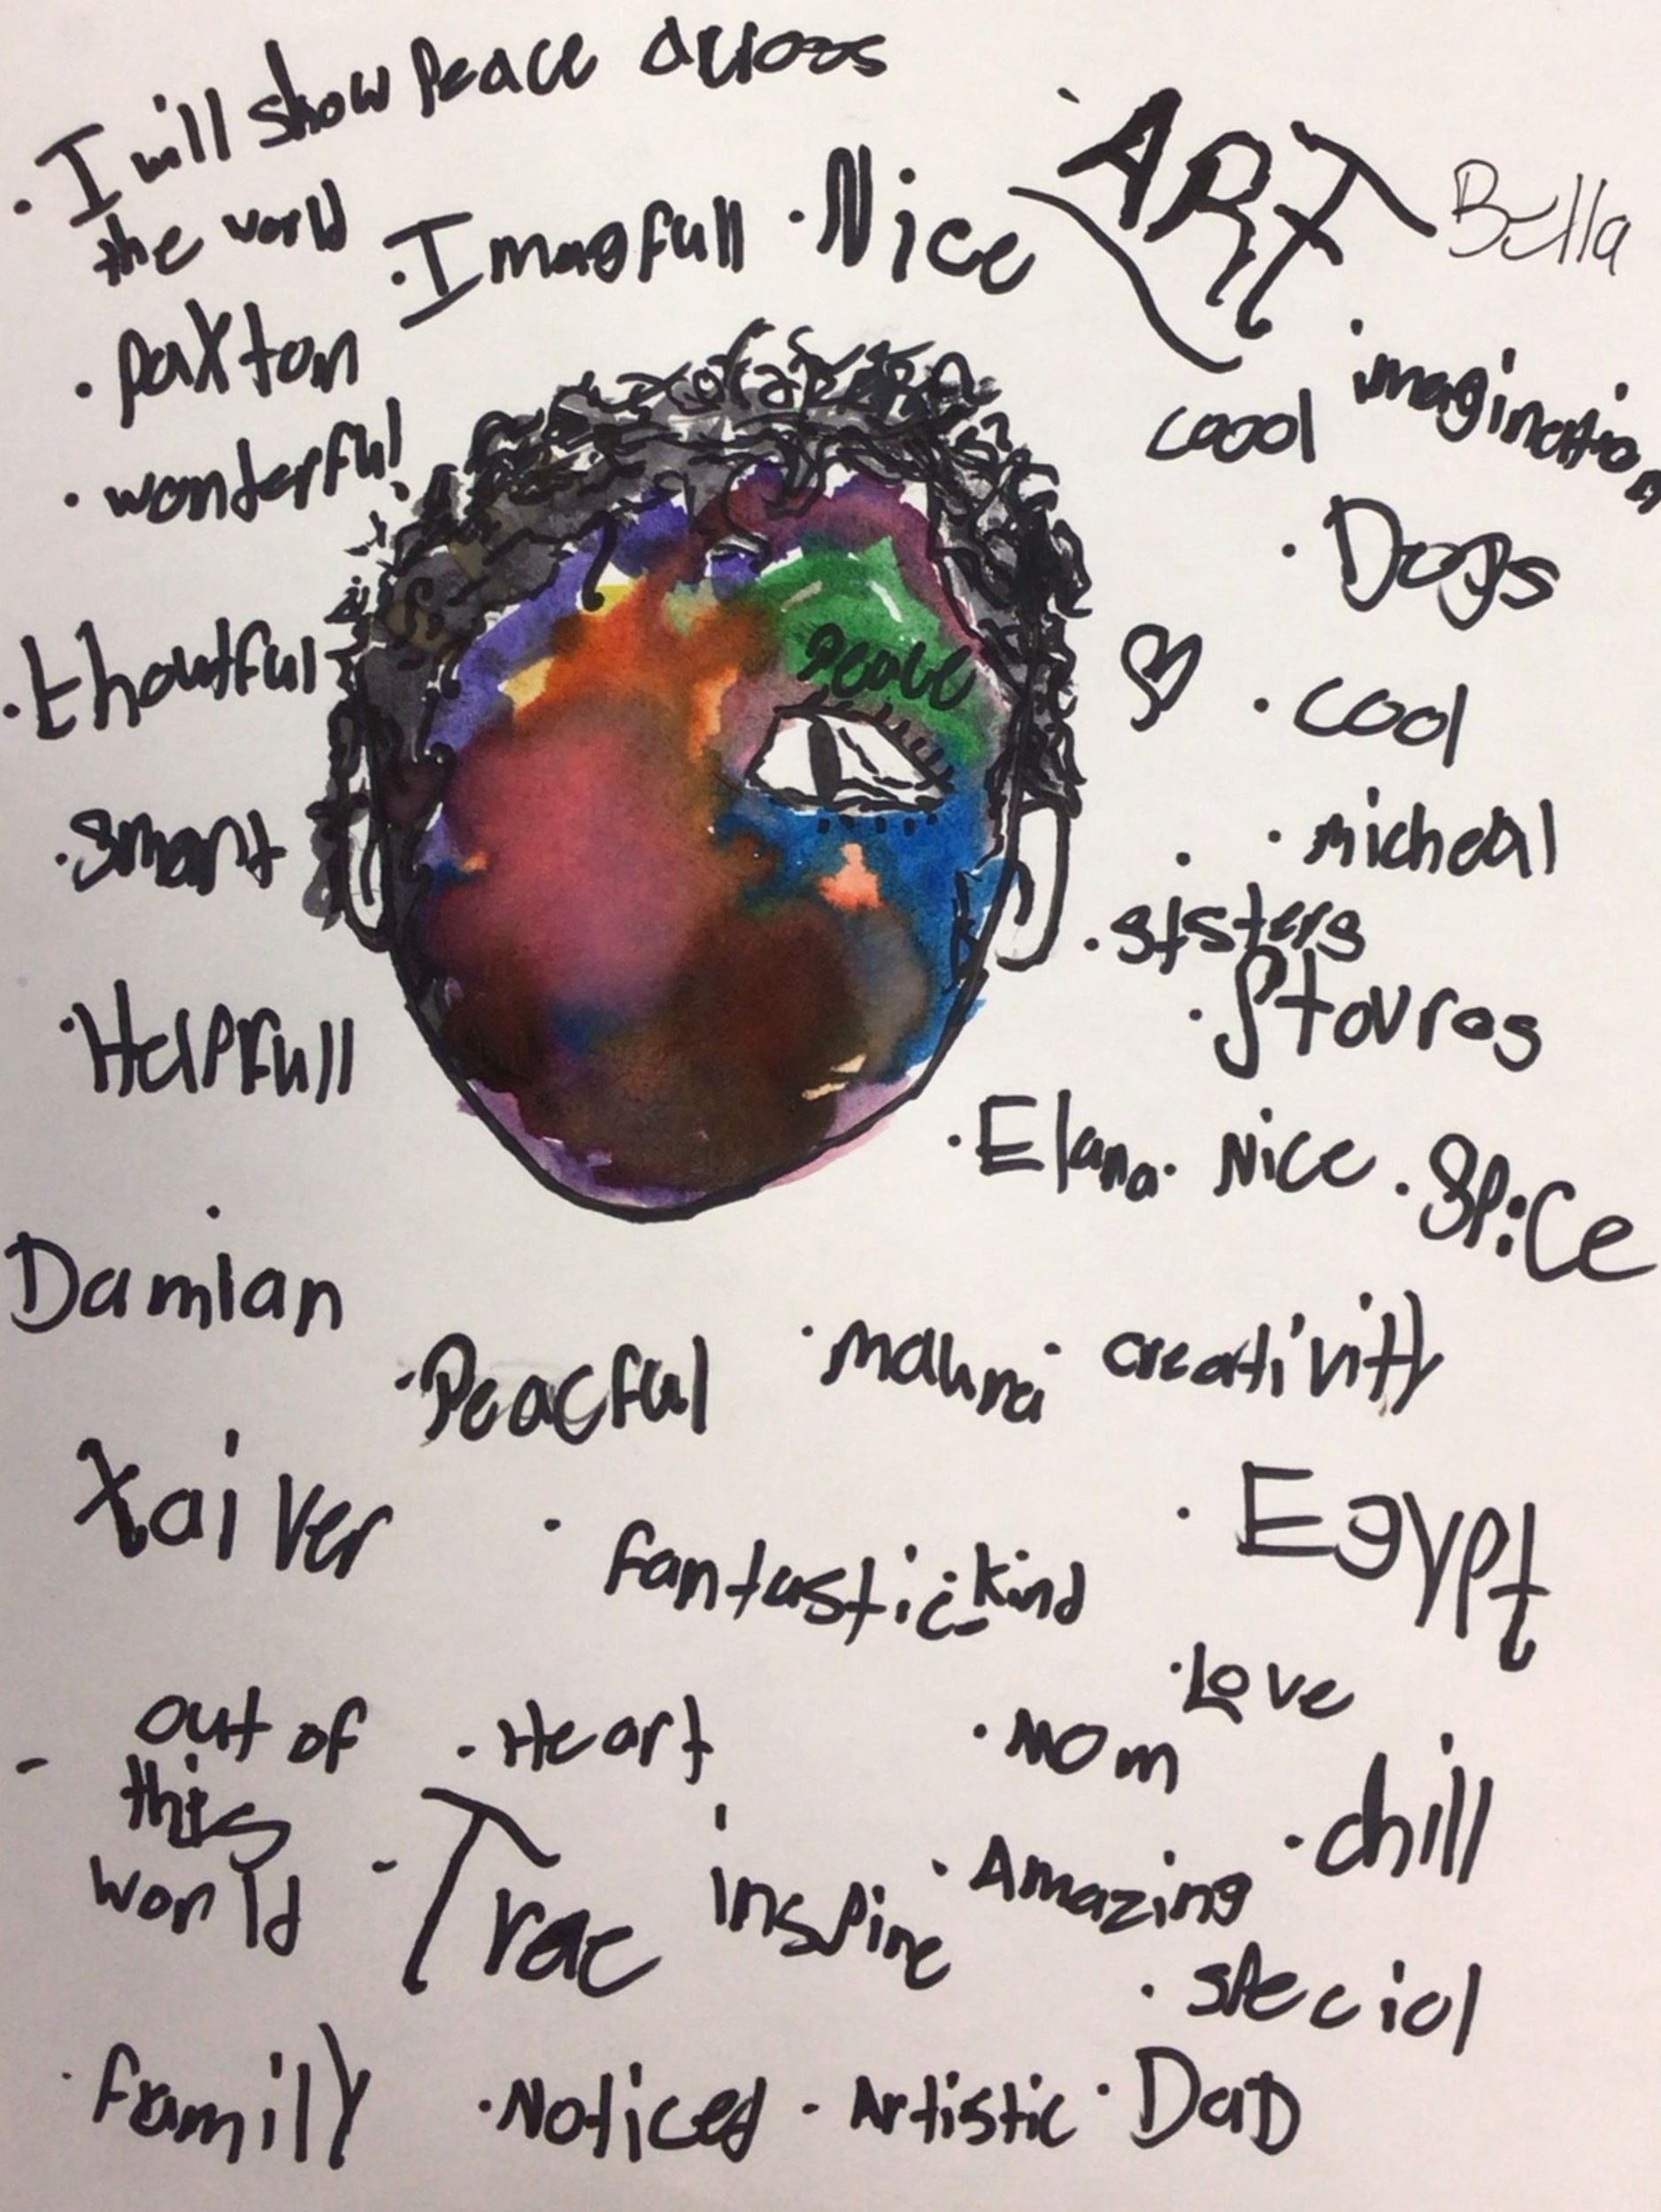 I will show Peace across
the world
Imagfull
Nice
ART
Bella
paxton
coool
imagination
wonderful
Dogs
Peace
thoutful
cool
smart
micheal
sisters
Stavros
Helpfull
Elana
Nice
Spice
Damian
Peacful
maura
creativity
Xaiver
fantastic
kind
Egypt
Love
out of
this
world
Heart
Mom
chill
Trae
inspire
Amazing
speciol
family
Noticed
Artistic
DaD